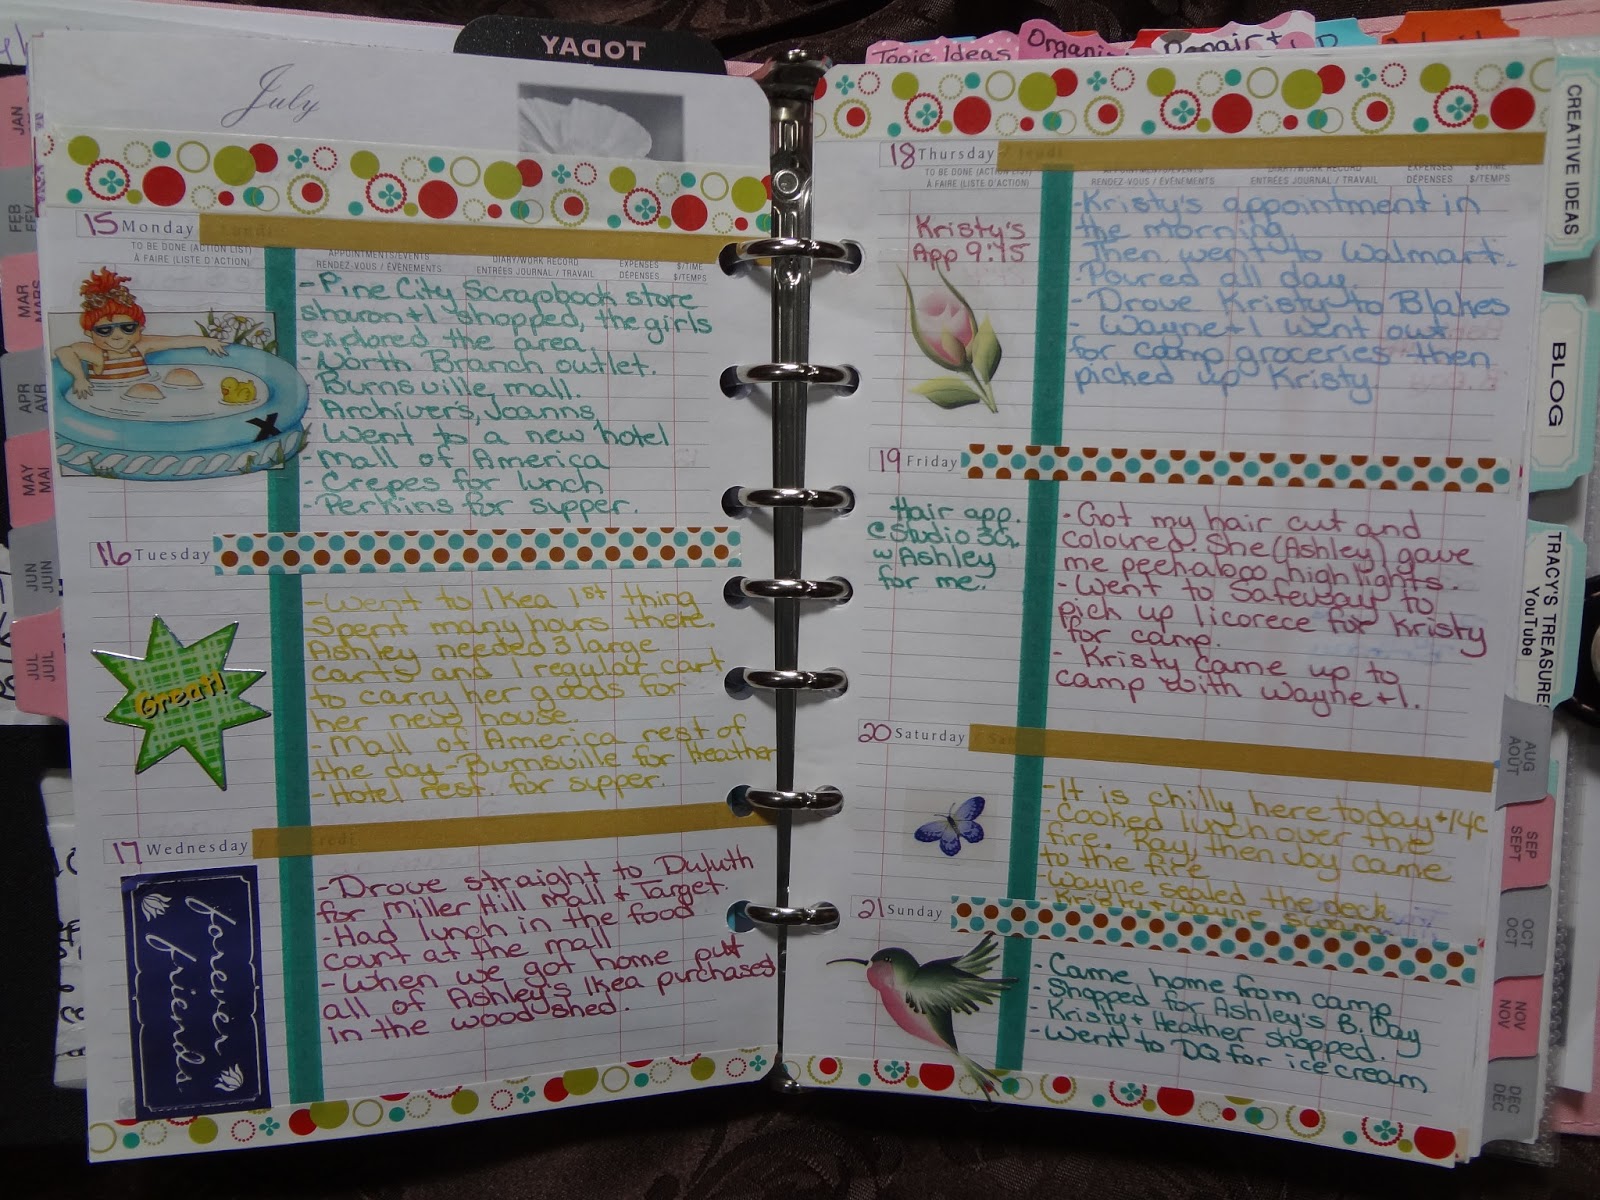 TODAY
Topic Ideas
July
15 Monday
TO BE DONE (ACTION LIST)
À FAIRE (LISTE D'ACTION)
APPOINTMENTS/EVENTS
RENDEZ-VOUS / ÉVÉNEMENTS
DIARY/WORK RECORD
ENTRÉES JOURNAL / TRAVAIL
EXPENSES
DÉPENSES
$/TIME
$/TEMPS
-Pine City Scrapbook store
sharon + I shopped, the girls
explored the area
-North Branch outlet.
-Burnsville mall.
-Archiver's, Joanns,
Went to a new hotel
-Mall of America
-Crepes for lunch
-Perkins for supper.
16 Tuesday
Great!
-Went to Ikea 1st thing
Spent many hours there.
Ashley needed 3 large
carts and 1 regular cart
to carry her goods for
her new house.
-Mall of America rest of
the day-Burnsville for Heather
-Hotel rest. for supper.
17 Wednesday
forever
friends
-Drove straight to Duluth
for Miller Hill Mall + Target.
-Had lunch in the food
court at the mall
-When we got home put
all of Ashley's Ikea purchases
in the wood shed.
18 Thursday
TO BE DONE (ACTION LIST)
À FAIRE (LISTE D'ACTION)
APPOINTMENTS/EVENTS
RENDEZ-VOUS / ÉVÉNEMENTS
DIARY/WORK RECORD
ENTRÉES JOURNAL / TRAVAIL
EXPENSES
DÉPENSES
$/TIME
$/TEMPS
Kristy's
App 9:15
-Kristy's appointment in
the morning
Then went to Walmart.
-Poured all day.
-Drove Kristy to Blakes
-Wayne + I went out
for camp groceries then
picked up Kristy.
19 Friday
Hair app.
@ Studio 3G.
w/ Ashley
for me.
-Got my hair cut and
coloured. She (Ashley) gave
me peekaboo highlights.
-Went to Safeway to
pick up licorece for Kristy
for camp.
-Kristy came up to
camp with Wayne + I.
20 Saturday
-It is chilly here today +14c
-Cooked lunch over the
fire. Ray, then Joy came
to the fire
-Wayne sealed the deck
-Kristy + Wayne swam
21 Sunday
-Came home from camp
-Shopped for Ashley's B. Day
-Kristy + Heather shopped.
-Went to DQ for ice cream
JAN
FEB
MAR
MARS
APR
AVR
MAY
MAI
JUN
JUIN
JUL
JUIL
CREATIVE IDEAS
BLOG
TRACY'S TREASURES
YouTube
AUG
AOÛT
SEP
SEPT
OCT
OCT
NOV
NOV
DEC
DEC